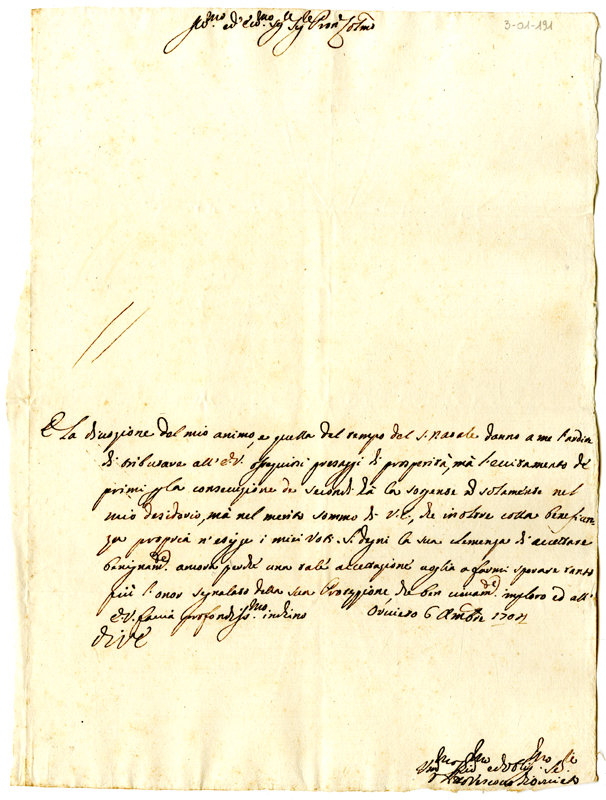 3-01-191
Ill.mo ed Ecc.mo Sig.re Sig.re Pron. Col.mo
E La divozione del mio animo, e quella del tempo del S. Natale danno a me l'ardire
di tributare all'E.V. ossequiosi presaggi di prosperità, mà l'eccitamento de
primi p la consecuzione de secondi hà la sorgente nõ solamente nel
mio desiderio, mà nel merito sommo di V.E., che inoltre colla beneficen
za propria n'esigge i miei voti. Si degni la sua clemenza di accettare
benignam.te ancora perché una tale accettazione voglia a farmi sperare tanto
più l'onor segnalato della sua Protezzione che ben vivam.te imploro ed all'
E.V. faccio profondiss.mo inchino Orvieto 6 Xmbre 1704
Di V.E.
Um.mo Dev.mo ed Obl.mo Se.re
Vescovo d'Orvieto